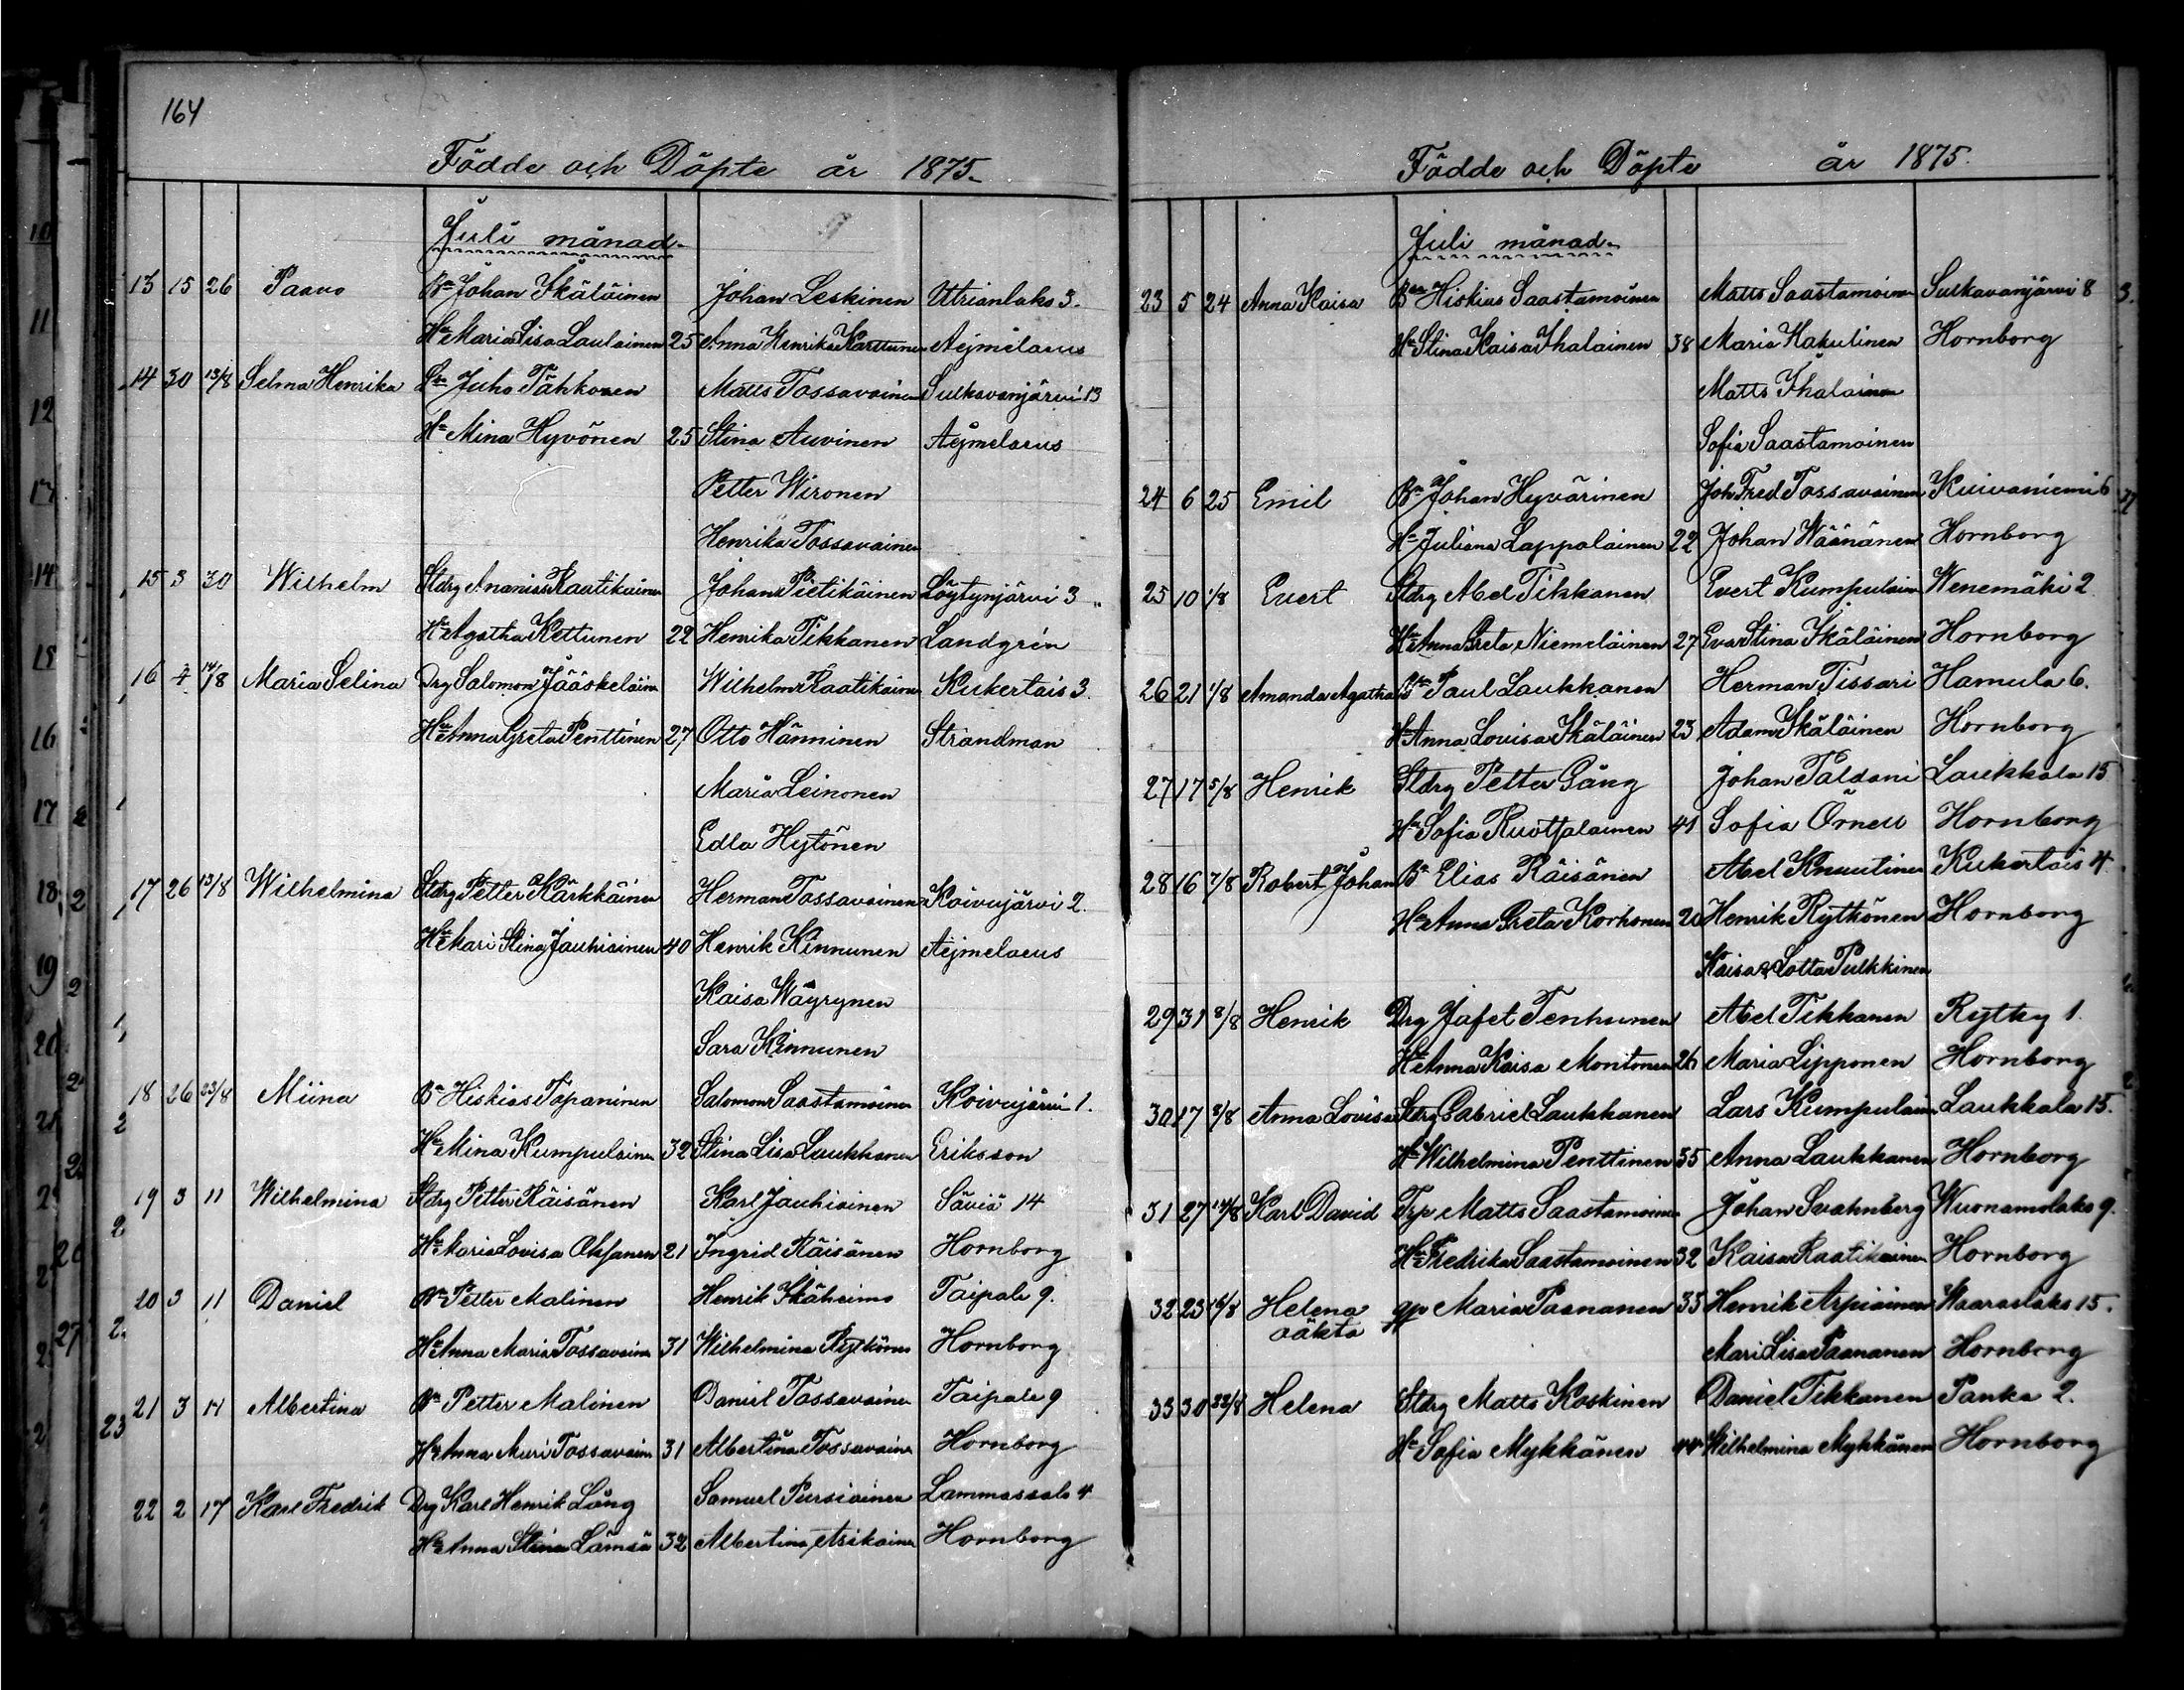 164
Födde och Döpte år 1875.
Juli månad.
13 15 26 Paavo Bn Johan Ikäläinen Johan Leskinen Utrianlaks 3.
Hu Maria Lisa Laulainen 25 Anna Henrika Karttunen Aejmelaeus
14 30 13/8 Selma Henrika Ln Juho Tähkonen Matts Tossavainen Sulkavanjärvi 13
Hu Mina Hyvönen 25 Stina Auvinen Aejmelaeus
Petter Wironen
Henrika Tossavainen
15 3 30 Wilhelm Stdrg Ananias Raatikainen Johan Pietikäinen Löytynjärvi 3
Hu Agatha Kettunen 22 Henrika Tikkanen Landgrén
16 4 14/8 Maria Selina Drg Salomon Jääskeläinen Wilhelm Raatikainen Kukertais 3.
Hu Anna Greta Penttinen 27 Otto Hänninen Strandman
Maria Leinonen
Edla Hytönen
17 26 13/8 Wilhelmina Stdrg Petter Kärkkäinen Herman Tossavainen Koivujärvi 2.
Hu Mari Stina Jauhiainen 40 Henrik Kinnunen Aejmelaeus
Kaisa Wäyrynen
Sara Kinnunen
18 26 23/8 Miina Bn Hiskias Tapaninen Salomon Saastamoinen Koivujärvi 1.
Hu Mina Kumpulainen 32 Stina Lisa Laukkanen Eriksson
19 3 11 Wilhelmina Stdrg Petter Räisänen Karl Jauhiainen Säviä 14
Hu Maria Lovisa Oksanen 21 Ingrid Räisänen Hornborg
20 3 11 Daniel Bn Petter Malinen Henrik Ikäheimo Taipale 9.
Hu Anna Maria Tossavainen 31 Wilhelmina Rytkönen Hornborg
21 3 11 Albertina Bn Petter Malinen Daniel Tossavainen Taipale 9
Hu Anna Mari Tossavainen 31 Albertina Tossavainen Hornborg
22 2 17 Karl Fredrik Drg Karl Henrik Lång Samuel Pursiainen Lammassalo 4
Hu Anna Stina Lämsä 32 Albertina Asikainen Hornborg
Födde och Döpte år 1875.
Juli månad.
23 5 24 Anna Kaisa Bn Hiskias Saastamoinen Matts Saastamoinen Sulkavanjärvi 8
Hu Stina Kaisa Ihalainen 38 Maria Hakulinen Hornborg
Matts Ihalainen
Sofia Saastamoinen
24 6 25 Emil Bn Johan Hyvärinen Joh. Fred Tossavainen Kuivaniemi 6
Hu Juliana Lappalainen 22 Johan Wäänänen Hornborg
25 10 1/8 Evert Stdrg Abel Tikkanen Evert Kumpulainen Wenemäki 2.
Hu Anna Greta Niemeläinen 27 Eva Stina Ikäläinen Hornborg
26 21 1/8 Amanda Agatha Bn Paul Laukkanen Herman Tissari Hamula 6.
Hu Anna Lovisa Ikäläinen 23 Adam Ikäläinen Hornborg
27 17 5/8 Henrik Stdrg Petter Gång Johan Paldani Laukkala 15
Hu Sofia Ruotsalainen 41 Sofia Örnell Hornborg
28 16 7/8 Robert Johan Bn Elias Räisänen Abel Knuutinen Kukertais 4.
Hu Anna Greta Korhonen 20 Henrik Rytkönen Hornborg
Kaisa & Lotta Pulkkinen
29 31 8/8 Henrik Drg Jafet Tenhunen Abel Tikkanen Rytky 1.
Hu Anna Kaisa Montonen 26 Maria Lipponen Hornborg
30 17 8/8 Anna Lovisa Stdrg Gabriel Laukkanen Lars Kumpulainen Laukkala 15.
Hu Wilhelmina Penttinen 35 Anna Laukkanen Hornborg
31 27 14/8 Karl David Trp Matts Saastamoinen Johan Svahnberg Wuonamolaks 9.
Hu Fredrika Saastamoinen 32 Kaisa Raatikainen Hornborg
32 23 16/8 Helena qp Maria Paananen 35 Henrik Arpiainen Waaraslaks 15.
oäkta Mari Lisa Paananen Hornborg
33 30 22/8 Helena Stdrg Matts Koskinen Daniel Tikkanen Panka 2.
Hu Sofia Mykkänen 44 Wilhelmina Mykkänen Hornborg